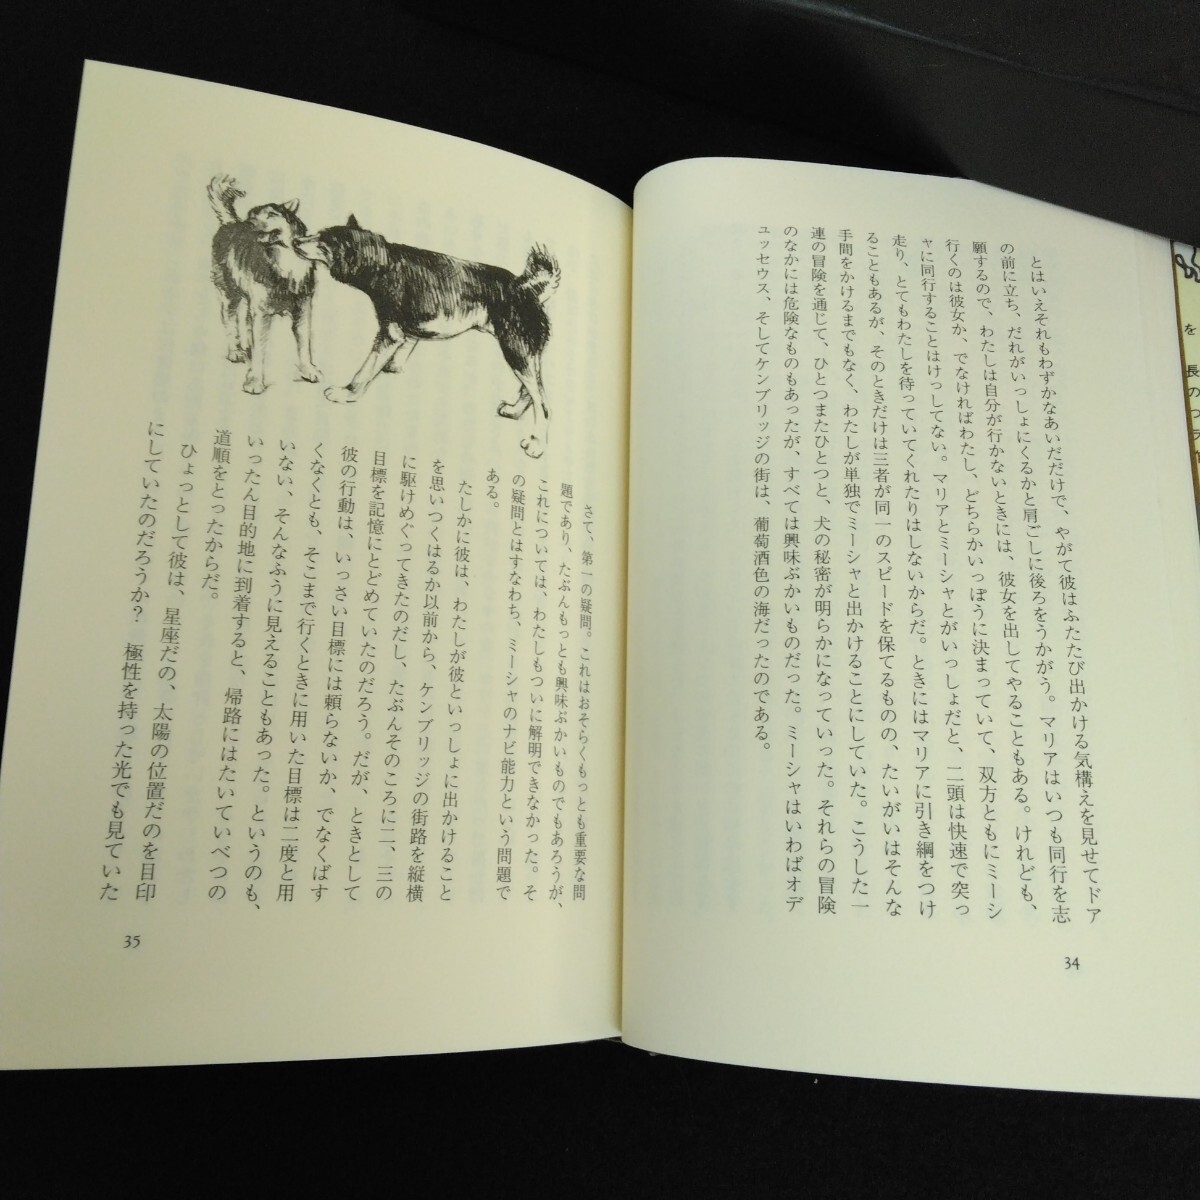 とはいえそれもわずかなあいだだけで、やがて彼はふたたび出かける気構えを見せてドア
の前に立ち、だれがいっしょにくるかと肩ごしに後ろをうかがう。マリアはいつも同行を志
願するので、わたしは自分が行かないときには、彼女を出してやることもある。けれども、
行くのは彼女か、でなければわたし、どちらかいっぽうに決まっていて、双方ともにミーシ
ャに同行することはけっしてない。マリアとミーシャとがいっしょだと、二頭は快速で突っ
走り、とてもわたしを待っていてくれたりはしないからだ。ときにはマリアに引き綱をつけ
ることもあるが、そのときだけは三者が同一のスピードを保てるものの、たいがいはそんな
手間をかけるまでもなく、わたしが単独でミーシャと出かけることにしていた。こうした一
連の冒険を通じて、ひとつまたひとつと、犬の秘密が明らかになっていった。それらの冒険
のなかには危険なものもあったが、すべては興味ぶかいものだった。ミーシャはいわばオデ
ュッセウス、そしてケンブリッジの街は、葡萄酒色の海だったのである。
34
さて、第一の疑問。これはおそらくもっとも重要な問
題であり、たぶんもっとも興味ぶかいものでもあろうが、
これについては、わたしもついに解明できなかった。そ
の疑問とはすなわち、ミーシャのナビ能力という問題で
ある。
たしかに彼は、わたしが彼といっしょに出かけること
を思いつくはるか以前から、ケンブリッジの街路を縦横
に駆けめぐってきたのだし、たぶんそのころに二、三の
目標を記憶にとどめていたのだろう。だが、ときとして
彼の行動は、いっさい目標には頼らないか、でなくばす
くなくとも、そこまで行くときに用いた目標は二度と用
いない、そんなふうに見えることもあった。というのも、
いったん目的地に到着すると、帰路にはたいていべつの
道順をとったからだ。
ひょっとして彼は、星座だの、太陽の位置だのを目印
にしていたのだろうか？　極性を持った光でも見ていた
35
を
長
の
つ